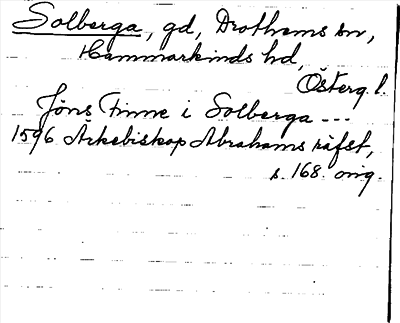 Solberga, gd, Drothems sn,
Hammarkinds hd,
Österg. l.
Jöns Finne i Solberga ---
1596 Ärkebiskop Abrahams räfst,
s. 168. orig.